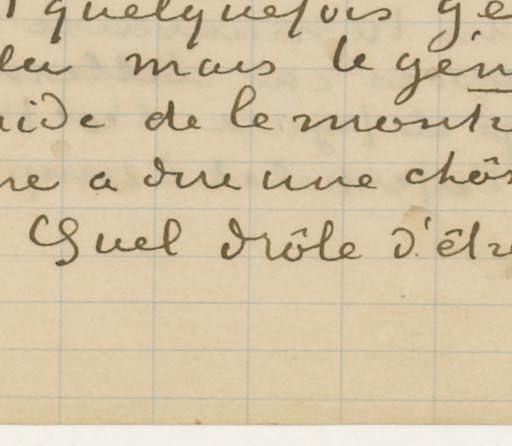 quelquefois gé
lu mais le gén
ide de le montr
re a dire une chôs
Quel drôle d'êtr